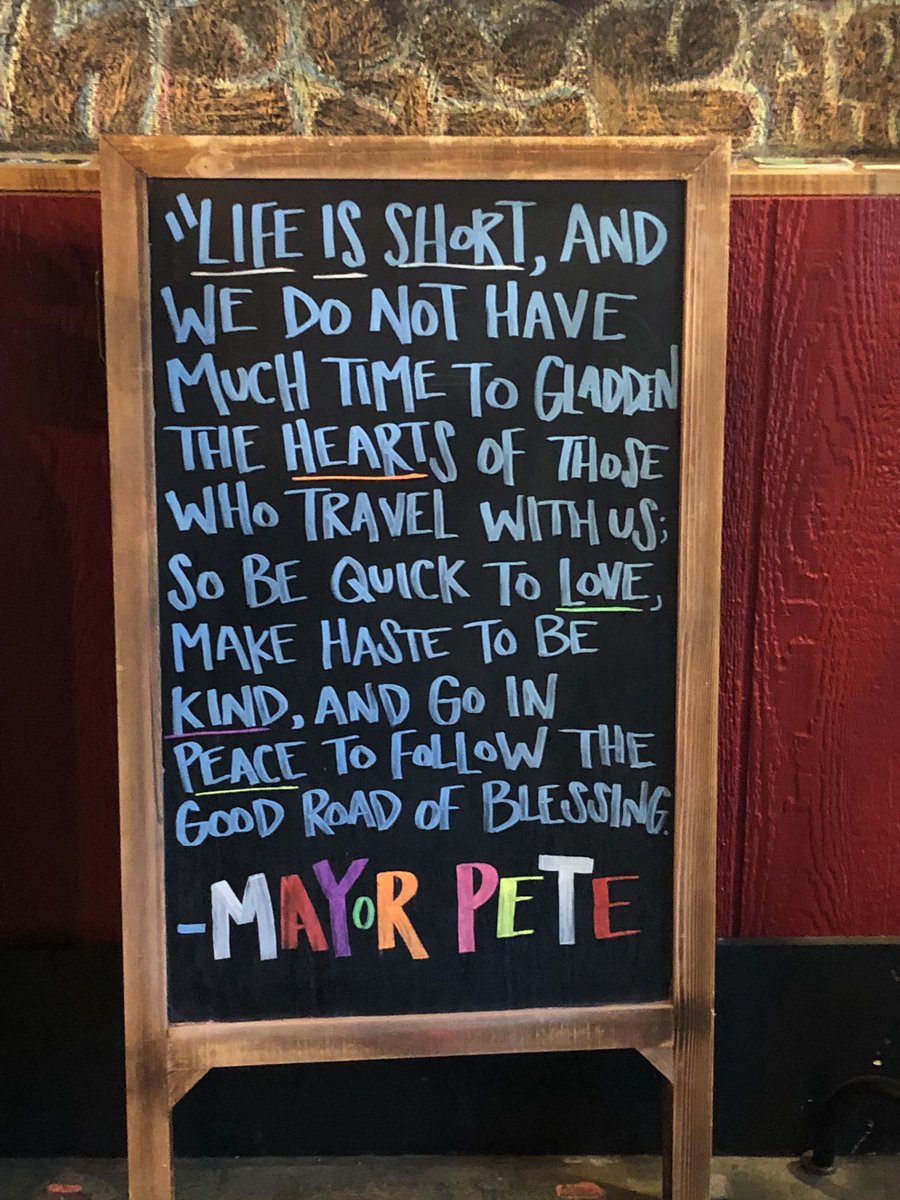 "LIFE IS SHORT, AND
WE DO NOT HAVE
MUCH TIME TO GLADDEN
THE HEARTS OF THOSE
WHO TRAVEL WITH US;
SO BE QUICK TO LOVE,
MAKE HASTE TO BE
KIND, AND GO IN
PEACE TO FOLLOW THE
GOOD ROAD OF BLESSING.
-MAYOR PETE